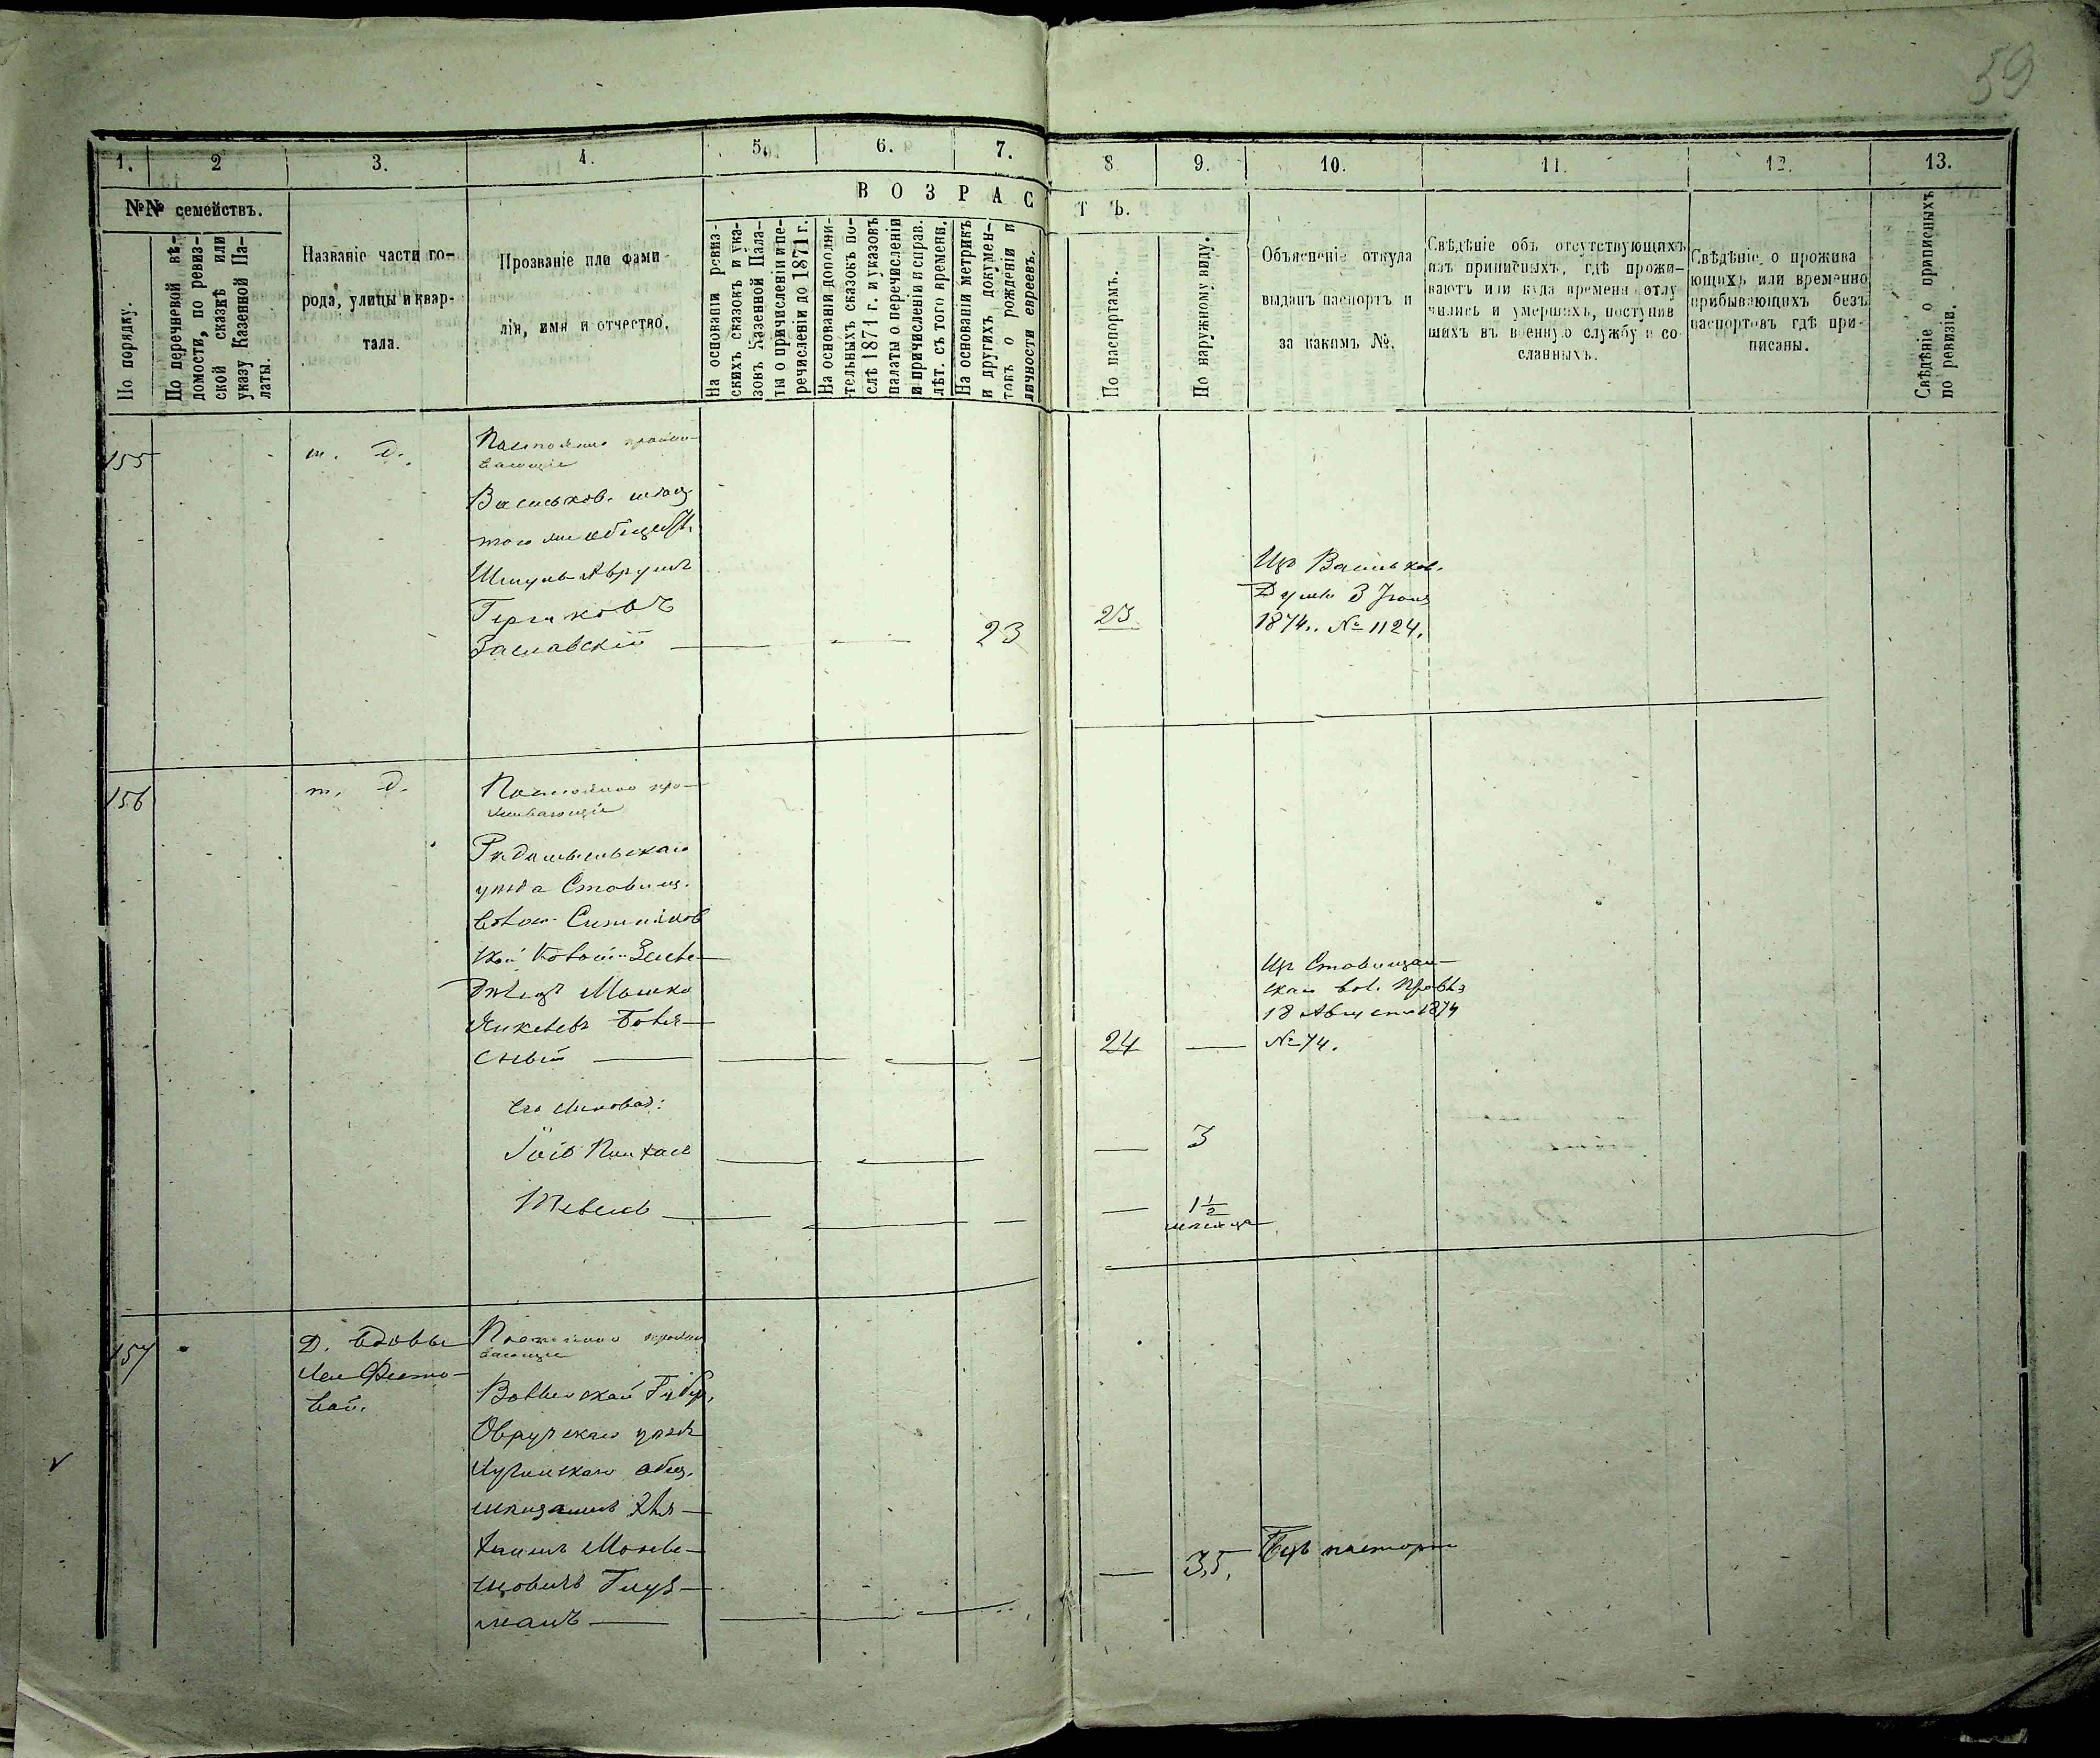 59
1. 2 3. 4. 5. 6. 7. 8 9. 10. 11. 12. 13.
№№ семействъ.
По порядку.
По перечневой вѣ-
домости, по ревиз-
ской сказкѣ или
указу Казенной Па-
латы.
Названіе части го-
рода, улицы и квар-
тала.
Прозваніе или фами
лія, имя и отчество.
ВОЗРАС
ТЪ.
На основаніи ревиз-
скихъ сказокъ и ука-
зовъ Казенной Пала-
ты о причисленіи и пе-
речисленіи до 1871 г.
На основаніи дополни-
тельныхъ сказокъ по-
слѣ 1871 г. и указовъ
палаты о перечисленіи
и причисленіи и справ.
лѣт. съ того времени.
На основаніи метрикъ
и другихъ докумен-
товъ о рожденіи и
личности евреевъ.
По паспортамъ.
По наружному виду.
Объясненіе откуда
выданъ паспортъ и
за какимъ №.
Свѣдѣніе объ отсутствующихъ
изъ приписныхъ, гдѣ прожи-
ваютъ или куда временн отлу
чились и умершихъ, поступив
шихъ въ военную службу и со
сланныхъ.
Свѣдѣніе о прожива
ющихъ или временно
прибывающихъ безъ
паспортовъ гдѣ при-
писаны.
Свѣдѣніе о приписныхъ
по ревизіи.
155
т. д.
Постоянно прожи-
вающіе
Васильков.
Шмуль Аврумъ
Гершковъ
Заславскій
23
23
Изъ Васильков.
Думы 3 Іюня
1874. № 1124.
156
т. д.
Постоянно про-
живающіе
Радомысльскаго
уѣзда Ставищ.
Мошко
Янкелевъ
24
Из Ставищан-
скаго вол. Правл
18 Августа 1874
№ 74.
Его сыновья:
3
Тевель
1½
мѣсяца
157
Д. вдовы
Постоянно прожи
вающіе
Волынской Губер.
Овручскаго уѣзда
общ.
мѣщанинъ
Глуз-
манъ
35,
Безъ паспорта